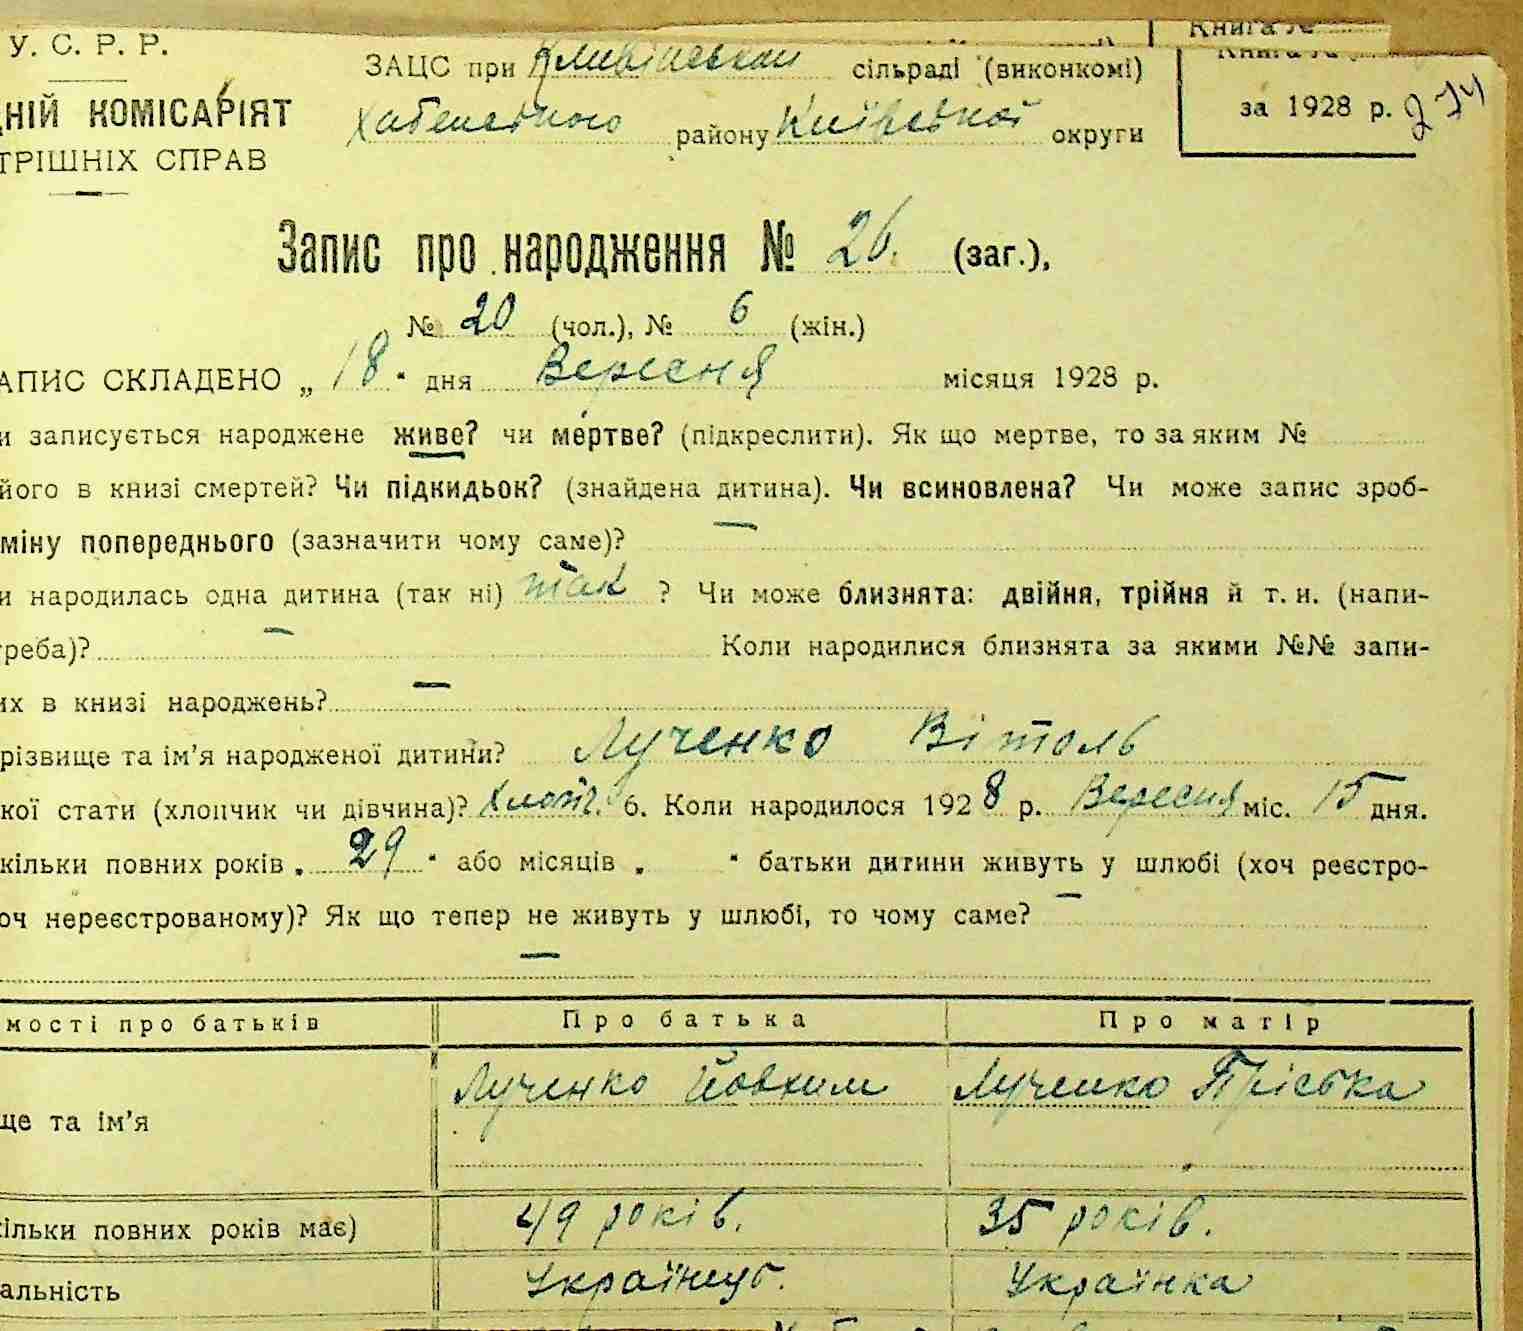 У. С. Р. Р.
Книга №
Книга №
ЗАЦС при сільраді (виконкомі)
ДНІЙ КОМІСАРІЯТ
за 1928 р. 274
Хабенського району Київської округи
ТРІШНІХ СПРАВ
Запис про народження № 26. (заг.),
№ 20 (чол.), № 6 (жін.)
АПИС СКЛАДЕНО „ 18 “ дня Вересня місяця 1928 р.
и записується народжене живе? чи мертве? (підкреслити). Як що мертве, то за яким №
його в книзі смертей? Чи підкидьок? (знайдена дитина). Чи всиновлена? Чи може запис зроб-
міну попереднього (зазначити чому саме)? —
и народилась одна дитина (так ні) так ? Чи може близнята: двійня, трійня й т. и. (напи-
треба)? — Коли народилися близнята за якими №№ запи-
их в книзі народжень? —
різвище та ім’я народженої дитини? Лученко Вітоль
кої стати (хлопчик чи дівчина)? Хлопч. 6. Коли народилося 1928 р. Вересня міс. 15 дня.
кільки повних років „ 29 “ або місяців „ “ батьки дитини живуть у шлюбі (хоч реєстро-
оч нереєстрованому)? Як що тепер не живуть у шлюбі, то чому саме? —
—
мості про батьків Про батька Про матір
ще та ім’я Лученко Йовхим Лученко Пріська
кільки повних років має) 49 років. 35 років.
альність Українець. Українка